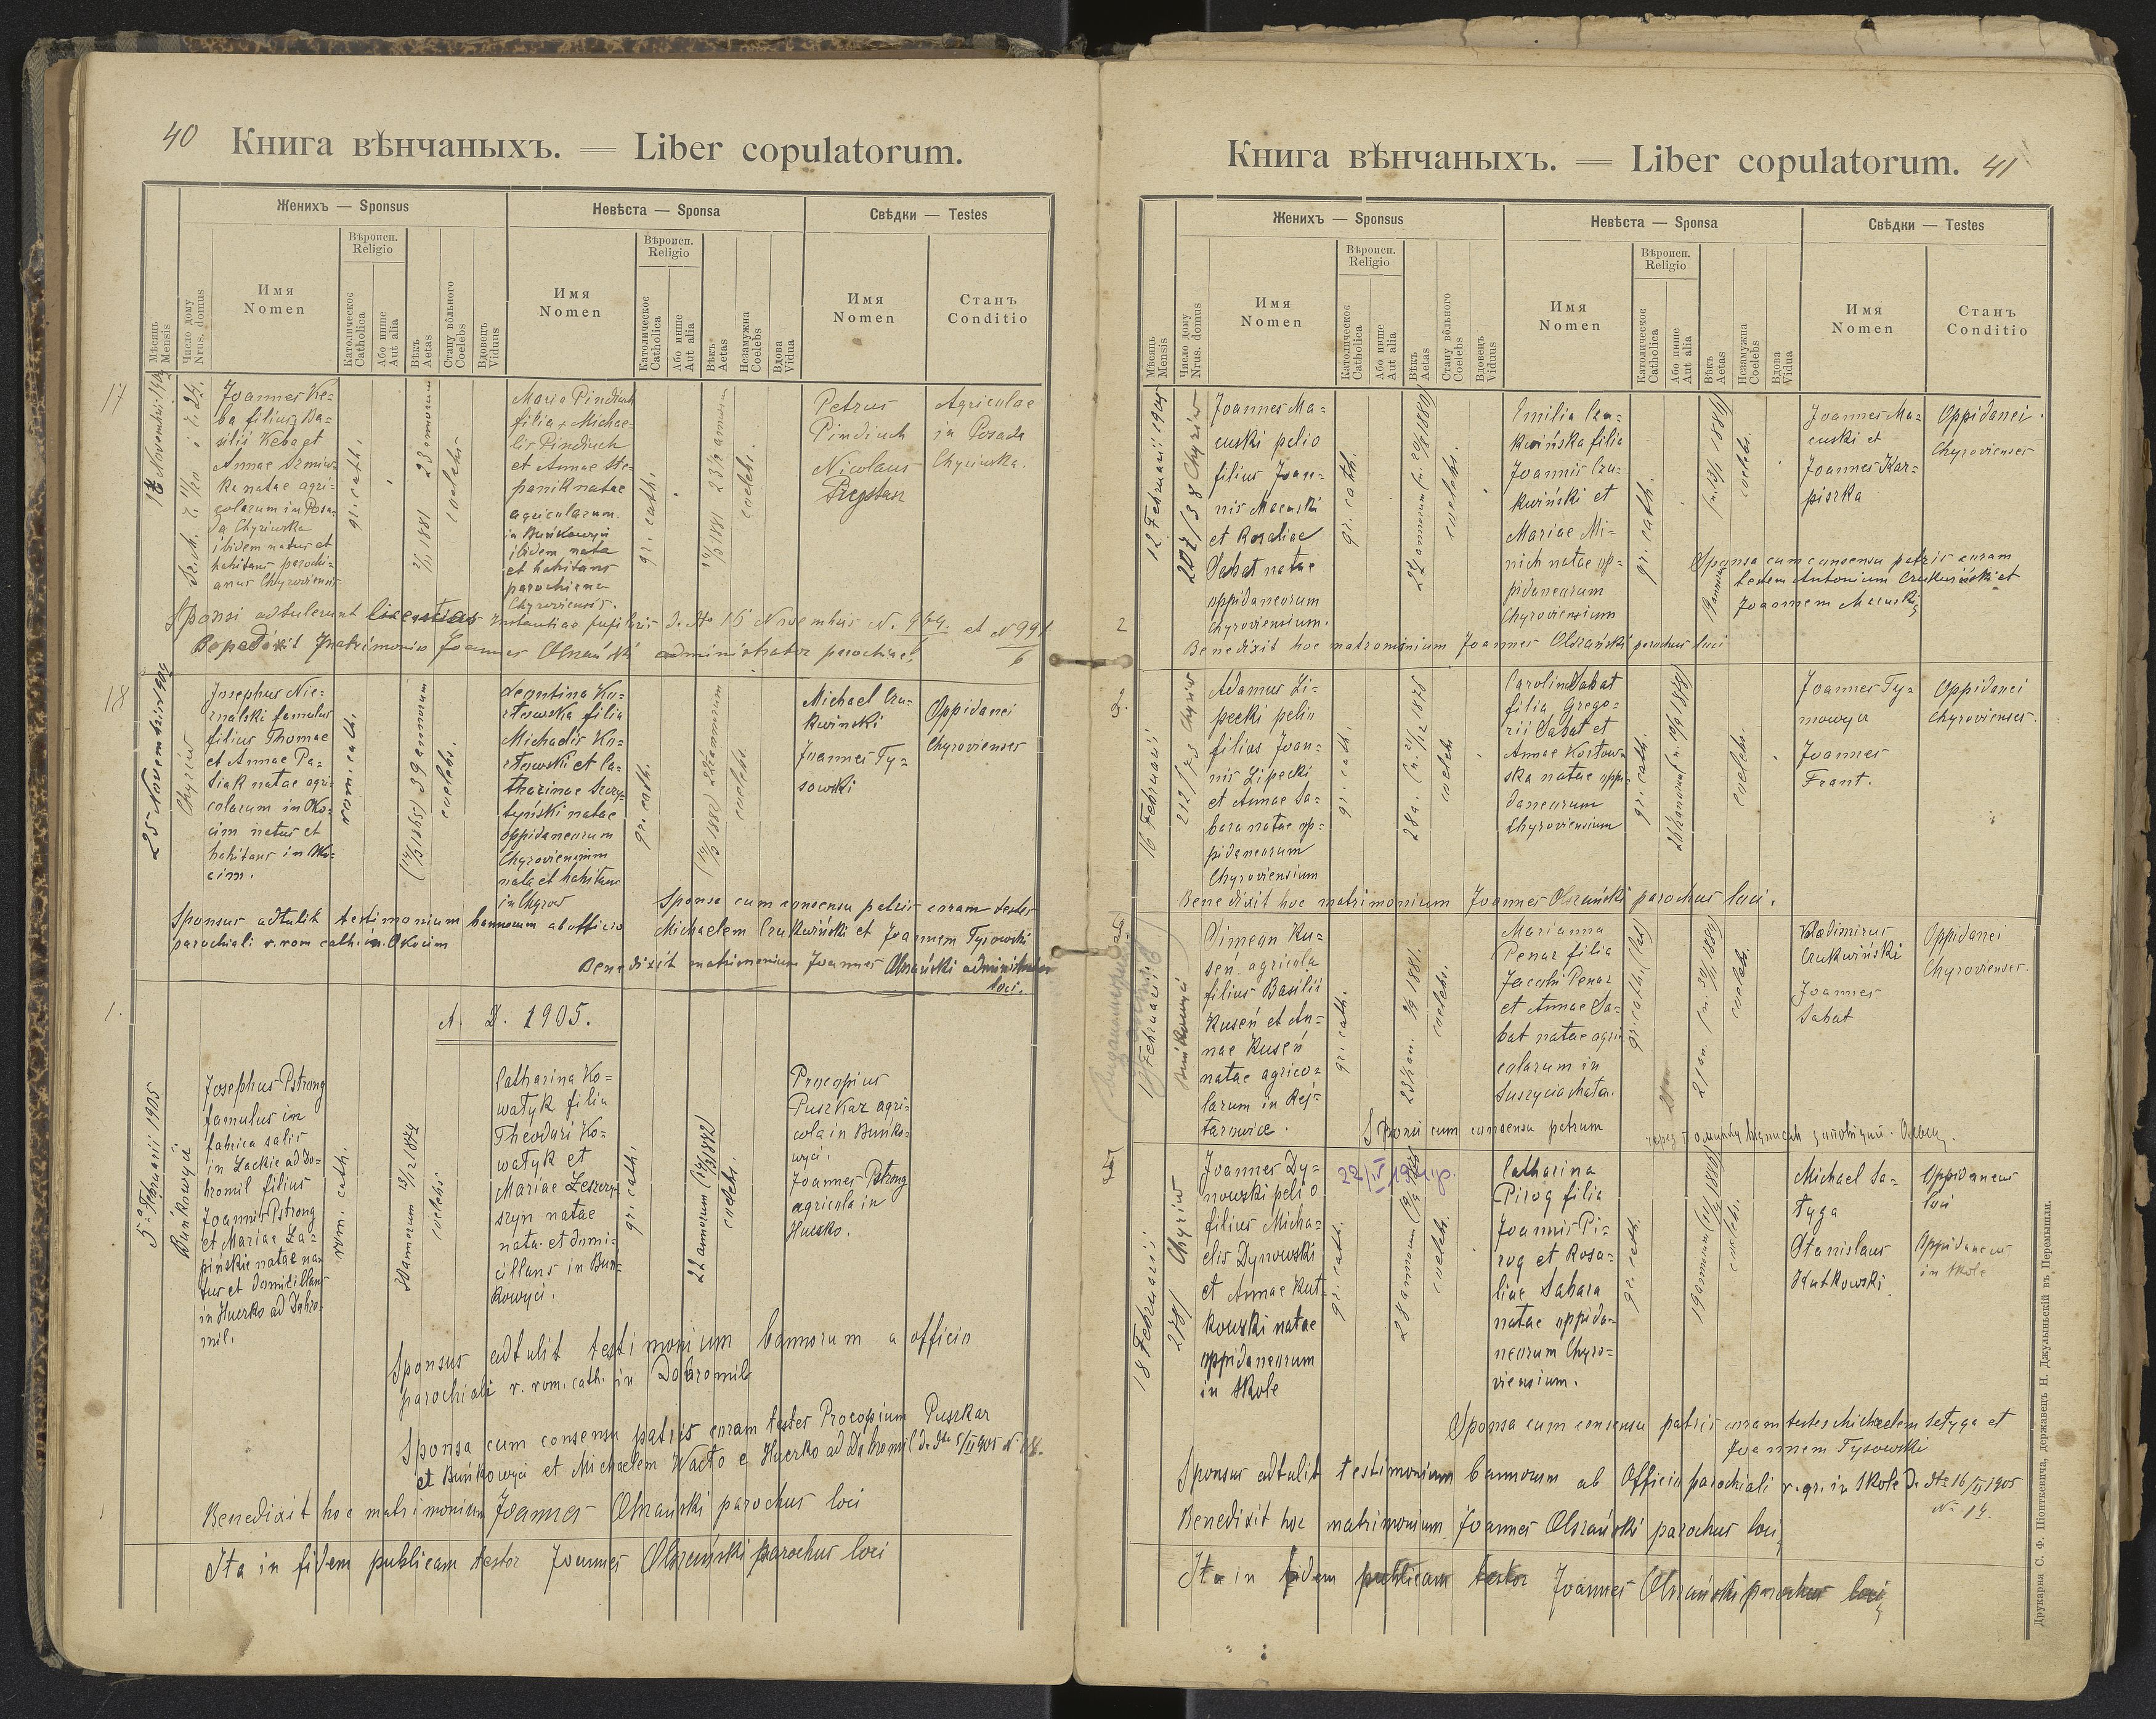 40 Книга вѣнчаныхъ. — Liber copulatorum.
Женихъ — Sponsus
Невѣста — Sponsa
Свѣдки — Testes
Мѣсяць
Mensis
Число дому
Nrus. domus
Имя
Nomen
Вѣроисп.
Religio
Католическое
Catholica
Або инше
Aut alia
Вѣкъ
Aetas
Стану вôльного
Coelebs
Вдовецъ
Viduus
Имя
Nomen
Вѣроисп.
Religio
Католическое
Catholica
Або инше
Aut alia
Вѣкъ
Aetas
Незамужна
Coelebs
Вдова
Vidua
Имя
Nomen
Станъ
Conditio
17
Joannes Ke=
ba filius Ba=
silii Keba et
Annae
ka natae agri=
colarum in Posa=
da Chyriwska
ibidem natus et
habitans parochi=
anus Chyroviensis
gr. cath.
1881 23 annorum
coelebs.
Maria Pindiuch
filia Michae=
lis Pindiuch
et Annae Ste=
panik natae
agricolarum
in Buńkowyci
ibidem nata
et habitans
parochiana
Chyroviensis.
gr. cath.
1881 23 ½ annorum
coelebs.
Petrus
Pindiuch
Nicolaus
Agricolae
in Posada
Chyriwska.
Sponsi adtulerunt licentias instantiae pupilaris d. dto 15 Novembris N. 964. et N 991
6
Benedixit matrimonio Joannes Olszański administrator parochiae.
18
25 Novembris 1904
Chyrów
Josephus Nie=
znalski famulus
filius Thomae
et Annae Pa=
siak natae agri=
colarum in Oko=
cim natus et
habitans in Oko=
cim.
rom. cath.
1865) 39 annorum
coelebs.
Leontina Ko=
rtowska filia
Michaelis Ko=
rtowski et Ca=
tharinae
natae
oppidaneorum
Chyroviensium
nata et habitans
in Chyrów
gr. cath.
1882) 22 annorum
coelebs.
Michael Cru=
kwinski
Joannes Ty=
sowski
Oppidanei
Chyrovienses
Sponsus adtulit testimonium bannorum ab officio
parochiali r. rom cath. in Okocim
Sponsa cum consensu patris coram testes
Michaelem Crukwiński et Joannem Tysowski
Benedixit matrimonium Joannes Olszański administrator
loci.
1.
A. D. 1905.
5 Februarii 1905
Buńkowyci
Josephus Pstrong
famulus in
fabrica salis
in Lackie ad Do=
bromil filius
Joannis Pstrong
et Mariae Ła=
pińskie natae na=
tus et domicilians
in Huczko ad Dobro=
mil.
rom. cath.
30 annorum 13/12 1874
coelebs
Catharina Ko=
wałyk filia
Theodori Ko=
wałyk et
Mariae Leszczy=
szyn natae
nata et domi=
cilians in Buń=
kowyci.
gr. cath.
22 annorum 1882)
coelebs.
Procopius
Puszkar agri=
cola in Buńko=
wyci.
Joannes Pstrong
agricola in
Huczko.
Sponsus adtulit testimonium bannorum a officio
parochiali r. rom. cath. in Dobromil
Sponsa cum consensu patris coram testes Procopium Puszkar
et Buńkowyci et Michaelem Wacło e Huczko ad Dobromil d. dto 5/II 905 N 28.
Benedixit hoc matrimonium Joannes Olszański parochus loci
Ita in fidem publicam testor Joannes Olszański parochus loci
Книга вѣнчаныхъ. — Liber copulatorum. 41
Женихъ — Sponsus
Невѣста — Sponsa
Свѣдки — Testes
Мѣсяць
Mensis
Число дому
Nrus. domus
Имя
Nomen
Вѣроисп.
Religio
Католическое
Catholica
Або инше
Aut alia
Вѣкъ
Aetas
Стану вôльного
Coelebs
Вдовецъ
Viduus
Имя
Nomen
Вѣроисп.
Religio
Католическое
Catholica
Або инше
Aut alia
Вѣкъ
Aetas
Незамужна
Coelebs
Вдова
Vidua
Имя
Nomen
Станъ
Conditio
2
12 Februarii 1905
207/38 Chyrów
Joannes Ma=
cuski pelio
filius Joan=
nis Macuski
et Rosaliae
Sabat natae
oppidaneorum
Chyroviensium.
gr. cath.
24 annorum 1880)
coelebs.
Emilia Cru=
kwińska filia
Joannis Cru=
kwiński et
Mariae Mi=
nich natae op=
pidaneorum
Chyroviensium
gr. cath.
19 annorum
coelebs.
Joannes Ma=
cuski et
Joannes Kar=
piszka
Oppidanei
Chyrovienses
Sponsa cum consensu patris coram
testem Antonium Crukwiński et
Joannem Macuski
Benedixit hoc matromonium Joannes Olszański parochus loci
3.
16 Februarii
212/73 Chyrów
Adamus Li=
pecki pelio
filius Joan=
nis Lipecki
et Annae Sa=
bara natae op=
pidaneorum
Chyroviensium
gr. cath.
28 a. (n. 21/12 1876
coelebs
Carolina Sabat
filia Grego=
rii Sabat et
Annae Kortow=
ska natae oppi=
daneorum
Chyroviensium
gr. cath.
coelebs.
Joannes Ty=
mowycz
Joannes
Frant.
Oppidanei
Chyrovienses.
Benedixit hoc matrimonium Joannes Olszański parochus loci.
Februarii
Buńkowyci
Simeon Ku=
seń agricola
filius Basilii
Kuseń et An=
nae Kuseń
natae agrico=
larum in Rej=
tarowice.
gr. cath.
1881.
coelebs.
Marianna
Penar filia
Jacobi Penar
et Annae Sa=
bat natae agri=
colarum in
Suszyca nata.
gr. cath.
21 an.
coelebs.
Wladimirus
Crukwiński
Joannes
Sabat
Oppidanei
Chyrovienses.
Sponsi cum consensu patrum
18 Februarii
278/ Chyrów
Joannes Dy=
nowski pelio
filius Micha=
elis Dynowski
et Annae Rut=
kowski natae
oppidaneorum
in Skole
gr. cath.
28 annorum
coelebs.
Catharina
Pirog filia
Joannis Pi=
rog et Rosa=
liae Sabara
natae oppida=
neorum Chyro=
viensium.
gr. cath.
19 annorum
coelebs.
Michael Se=
tyga
Stanislaus
Rutkowski
Oppidaneus
loci
Oppidaneus
in Skole
Sponsa cum consensu patris coram testes Michaelem Setyga et
Joannem Tysowski
Sponsus adtulit testimonium bannorum ab Officio parochiali r. gr. in Skole d. dto 16/II 1905
N. 14.
Benedixit hoc matrimonium Joannes Olszański parochus loci
Ita in fidem publicam testor Joannes Olszański parochus loci
Друкарня С. Ф. Піонткевича, державецъ Н. Джулыньскій въ Перемышли.